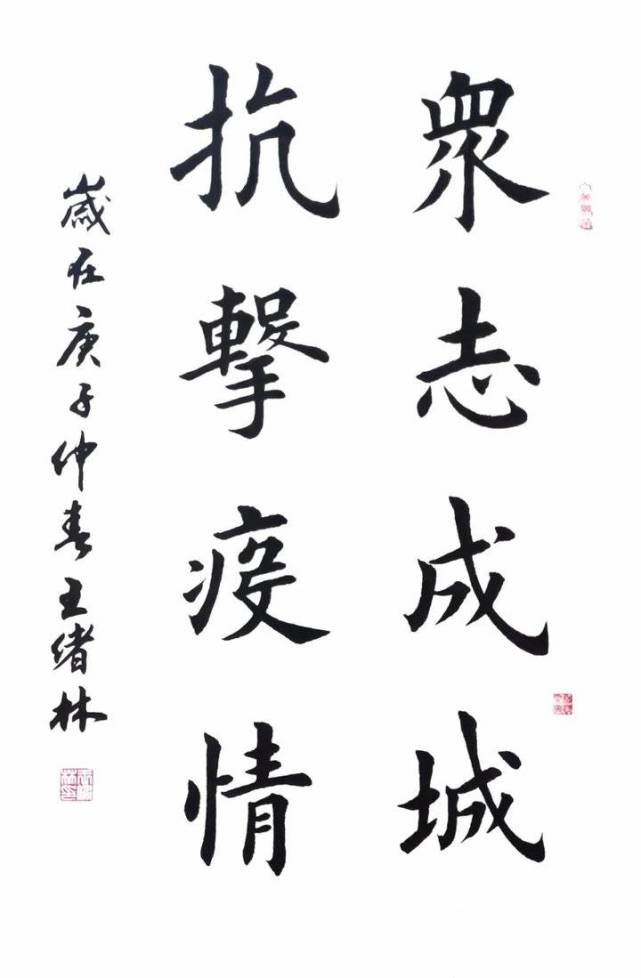 眾志成城
抗擊疫情
歲在庚子仲春王绪林